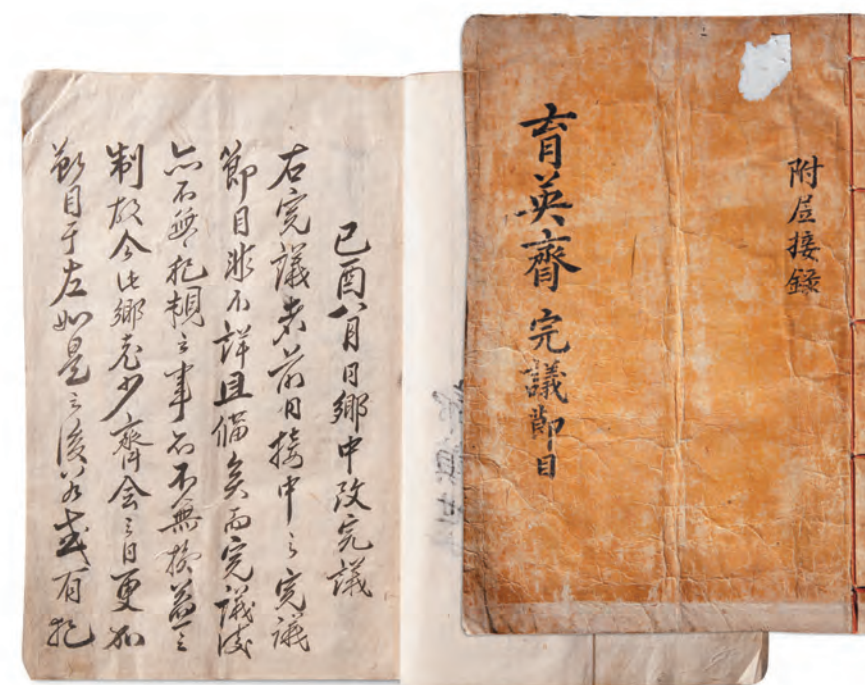 附居接錄
育英齋 完議節目
己酉八月日鄉中改完議
右完議者前日接中之完議
節目非不詳且備矣而完議後
亦不無犯規之事而不無損益之
制故今此鄉老少齊會之日更加
目于左如是之後若或有犯